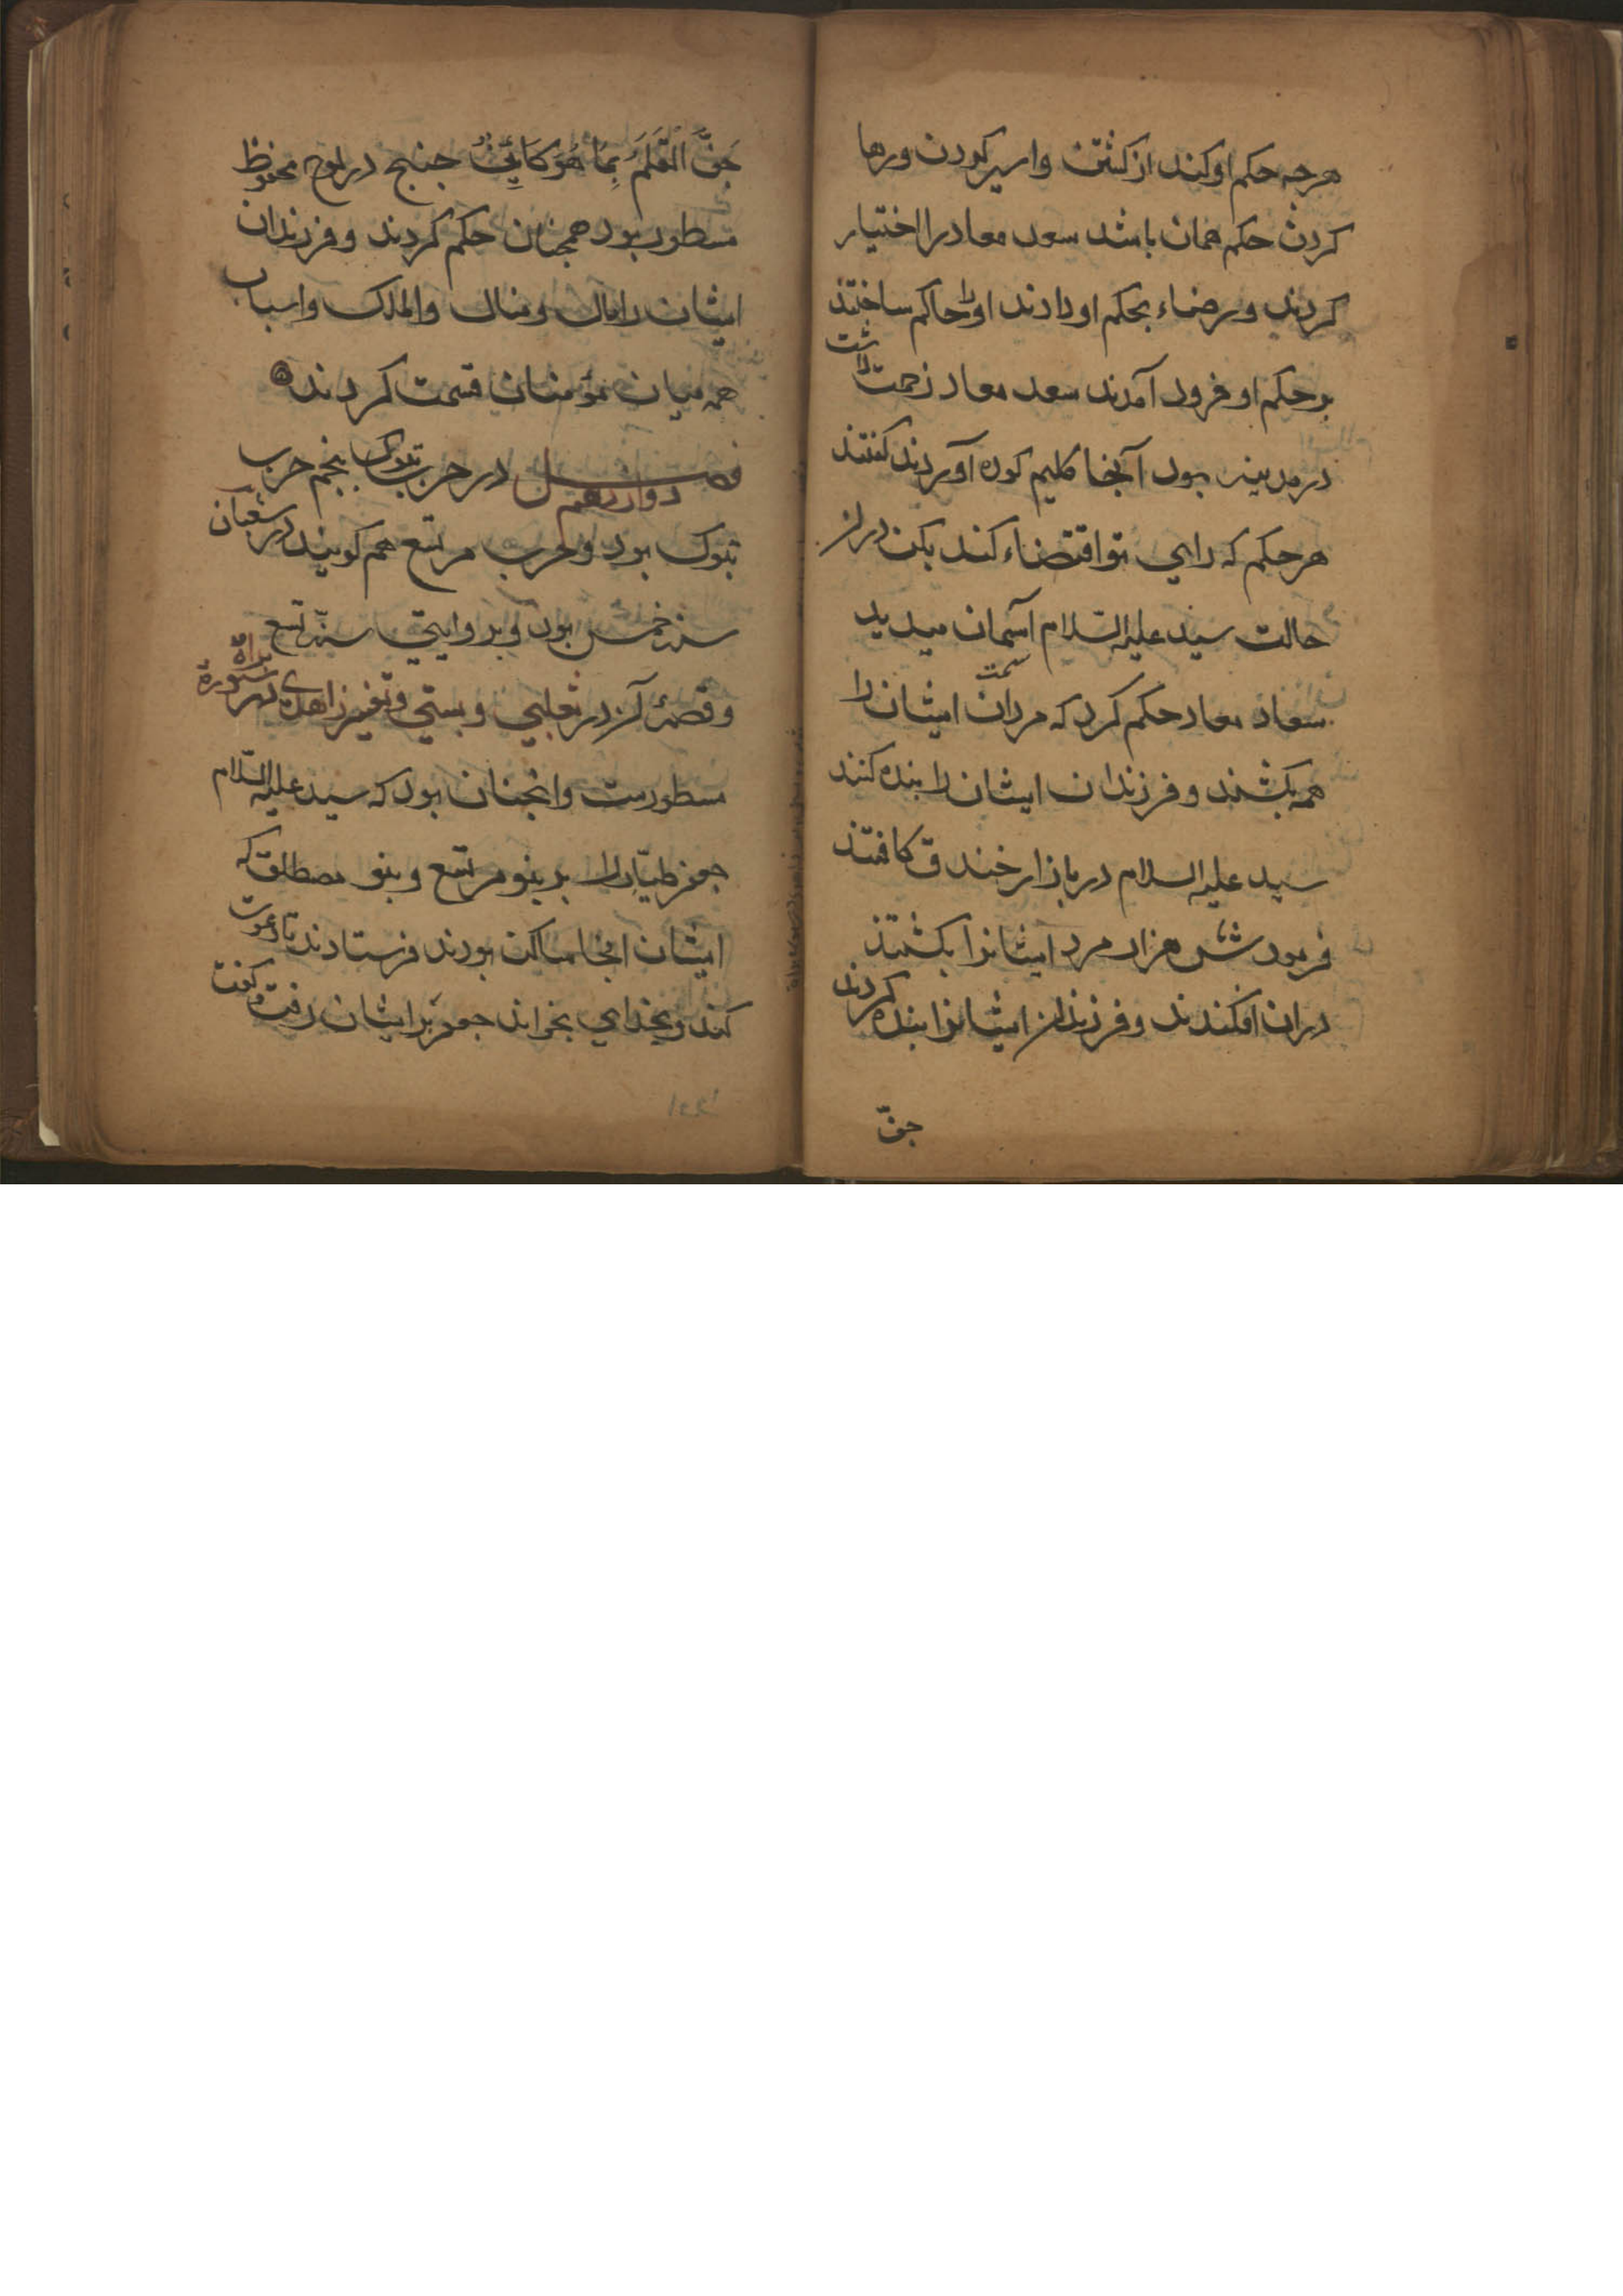 هرچه حکم او کند از کشتن و اسیر کردن و رها
کردن حکم همان باشد سعد معاذ را اختیار
کردند و رضاء بحکم او دادند او را حاکم ساختند
بر حکم او فرود آمدند سعد معاد زحمت داشت
در مدینه بود آنجا کلیم کوه آوردند کفتند
هر حکم که رای تو اقتضاء کند بکن دران
حالت سید علیه السلام آسمان میدید
سعاد معاد حکم کرد که مردان ایشان را
همه بکشند و فرزندان ایشان را بنده کنند
سید علیه السلام در بازار خندق کافتند
فرمود شش هزار مرد ایشانرا بکشتند
دران افکندند و فرزندان ایشانرا بنده کردند
جفّ
جَفَّ القَلَمُ بِمَا هُوَ کَایِنٌ جنبج در لوح محفوظ
مسطور بود همچنان حکم کردند و فرزندان
ایشان را مال و منال و املاک و اسباب
همه میان مؤمنان قسمت کردند
فصل دوازدهم در حرب تبوک پنجم حرب
تبوک بود و حرب مریسع هم کویند در شعبان
سنه خمس بود و بروایتی سنه تسع
و قصهٔ آن در ثعلبی و بستی و تفسیر زاهدی در سورة براة
مسطورست و انچنان بود که سید علیه السلام
جعفر طیّار را بر بنو مریسع و بنو مصطلق که
ایشان انجا ساکن بودند فرستادند تا دعوت
کند و بخدای بخواند جعفر بر ایشان رفت و کفت